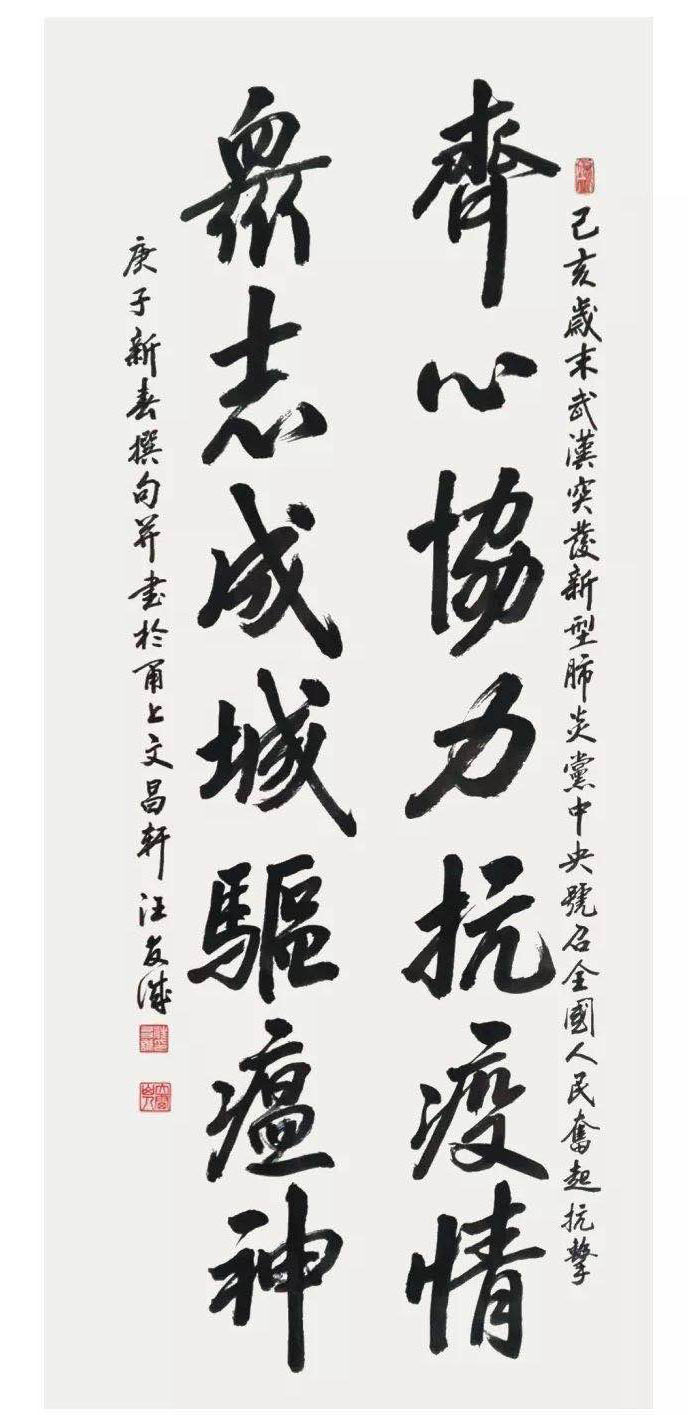 己亥歲末武漢突發新型肺炎黨中央號召全國人民奮起抗擊
齊心協力抗疫情
眾志成城驅瘟神
庚子新春撰句并書於甬上文昌軒汪友誠